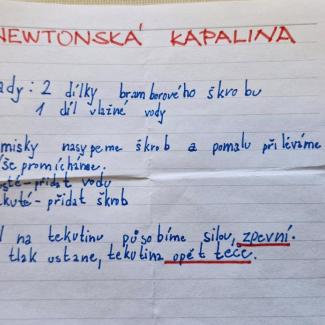 NEWTONSKÁ KAPALINA
ady: 2 dílky bramborového škrobu
1 díl vlažné vody
misky nasypeme škrob a pomalu přiléváme
še promícháme.
usté - přidat vodu
ekuté - přidat škrob
na tekutinu působíme silou, zpevní.
tlak ustane, tekutina opět teče.